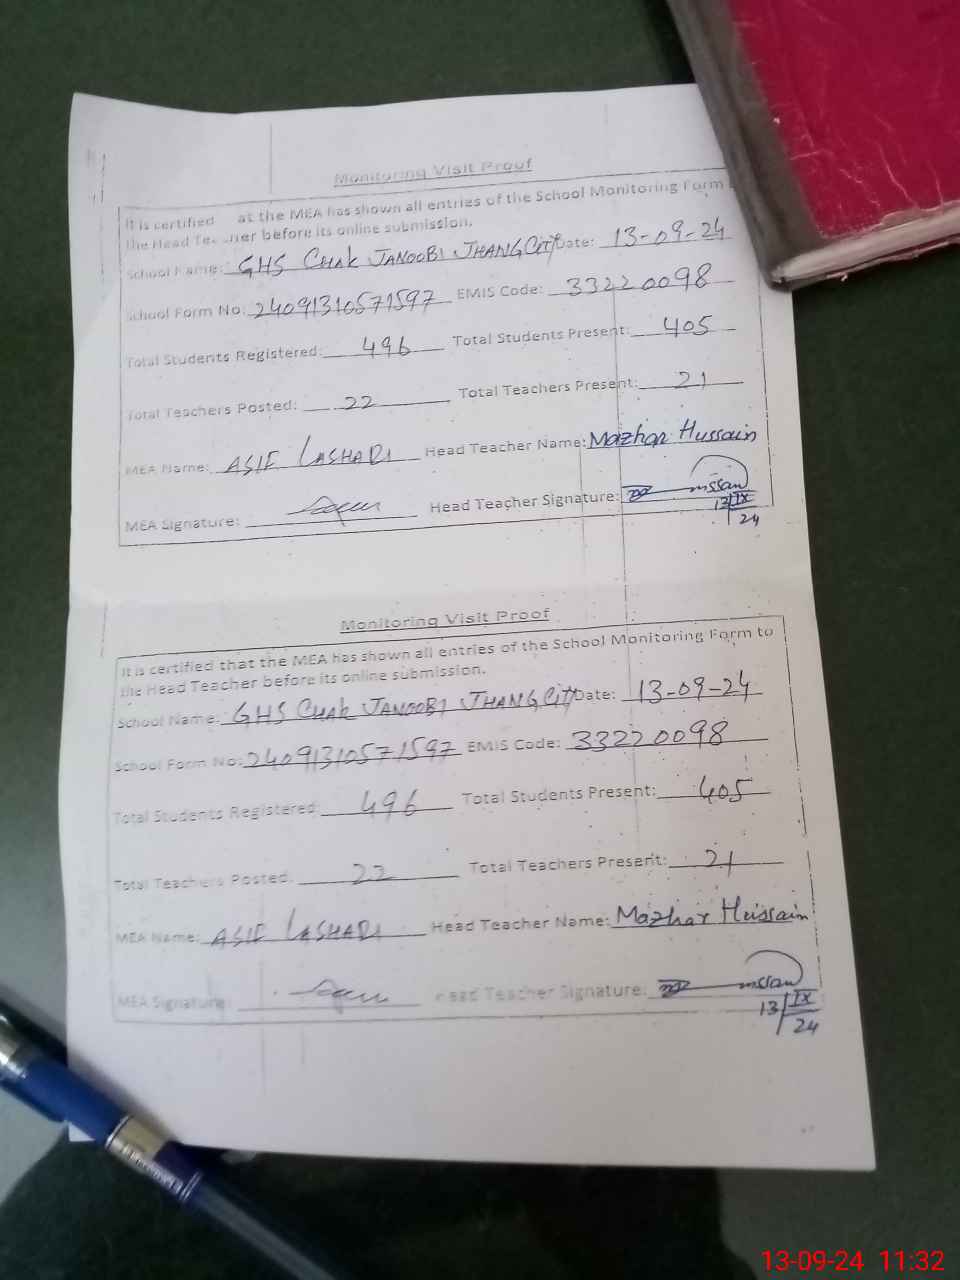 Monitoring Visit Proof
It is certified at the MEA has shown all entries of the School Monitoring Form
the Head Teacher before its online submission.
School Name: GHS CHAK JANOOBI JHANG CITY Date: 13-09-24
School Form No: 24091310571597 EMIS Code: 33220098
Total Students Registered: 496 Total Students Present: 405
Total Teachers Posted: 22 Total Teachers Present: 21
MEA Name: ASIF LASHARI Head Teacher Name: Mazhar Hussain
MEA Signature: Head Teacher Signature:
13/IX
24
Monitoring Visit Proof
It is certified that the MEA has shown all entries of the School Monitoring Form to
the Head Teacher before its online submission.
School Name: GHS CHAK JANOOBI JHANG CITY Date: 13-09-24
School Form No: 24091310571597 EMIS Code: 33220098
Total Students Registered: 496 Total Students Present: 405
Total Teachers Posted: 22 Total Teachers Present: 21
MEA Name: ASIF LASHARI Head Teacher Name: Mazhar Hussain
MEA Signature: Head Teacher Signature:
13/IX
24
13-09-24 11:32